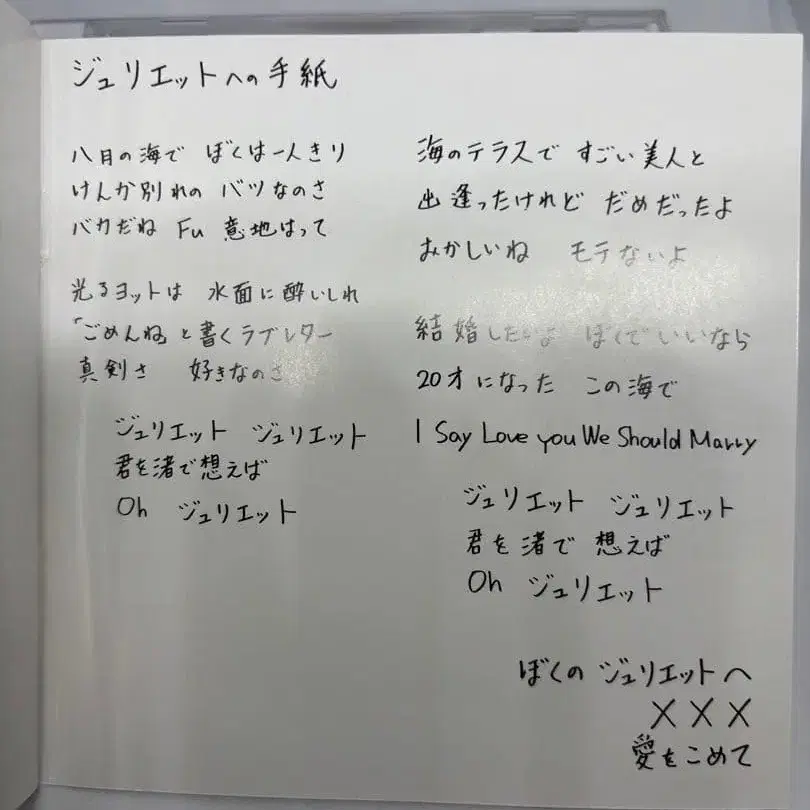 ジュリエットへの手紙
八月の海で ぼくは一人きり
けんか別れの バツなのさ
バカだね Fu 意地はって
光るヨットは 水面に酔いしれ
「ごめんね」と書くラブレター
真剣さ 好きなのさ
ジュリエット ジュリエット
君を渚で想えば
Oh ジュリエット
海のテラスで すごい美人と
出逢ったけれど だめだったよ
おかしいね モテないよ
結婚したいよ ぼくでいいなら
20才になった この海で
I Say Love you We Should Marry
ジュリエット ジュリエット
君を渚で 想えば
Oh ジュリエット
ぼくの ジュリエットへ
XXX
愛をこめて